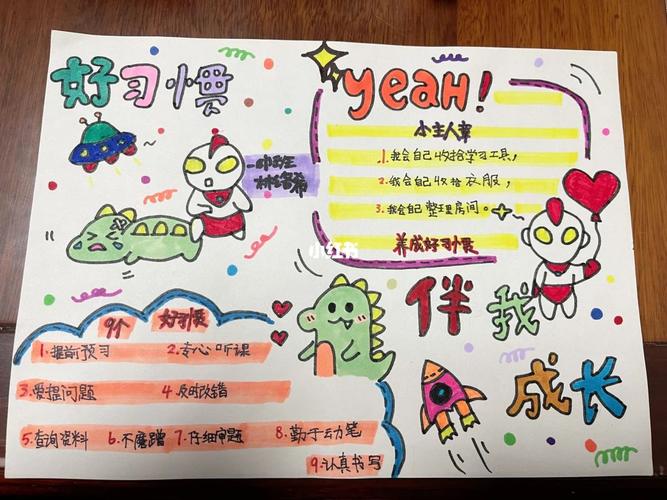 好习惯
yeah!
小主人章
1.我会自己收拾学习工具,
2.我会自己收拾衣服,
3.我会自己整理房间。
养成好习惯
中班
小红书
伴我
成长
9个 好习惯
1.提前预习 2.专心听课
3.爱提问题 4.及时改错
5.查询资料 6.不磨蹭 7.仔细审题 8.勤于动笔
9.认真书写